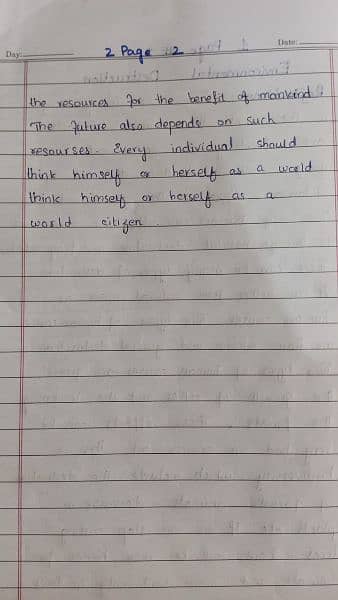 Day:
2 Page 2
Date:
the resources for the benefit of mankind.
The future also depends on such
resourses. Every individual should
think himself or herself as a world
think himself or herself as a
world citizen.